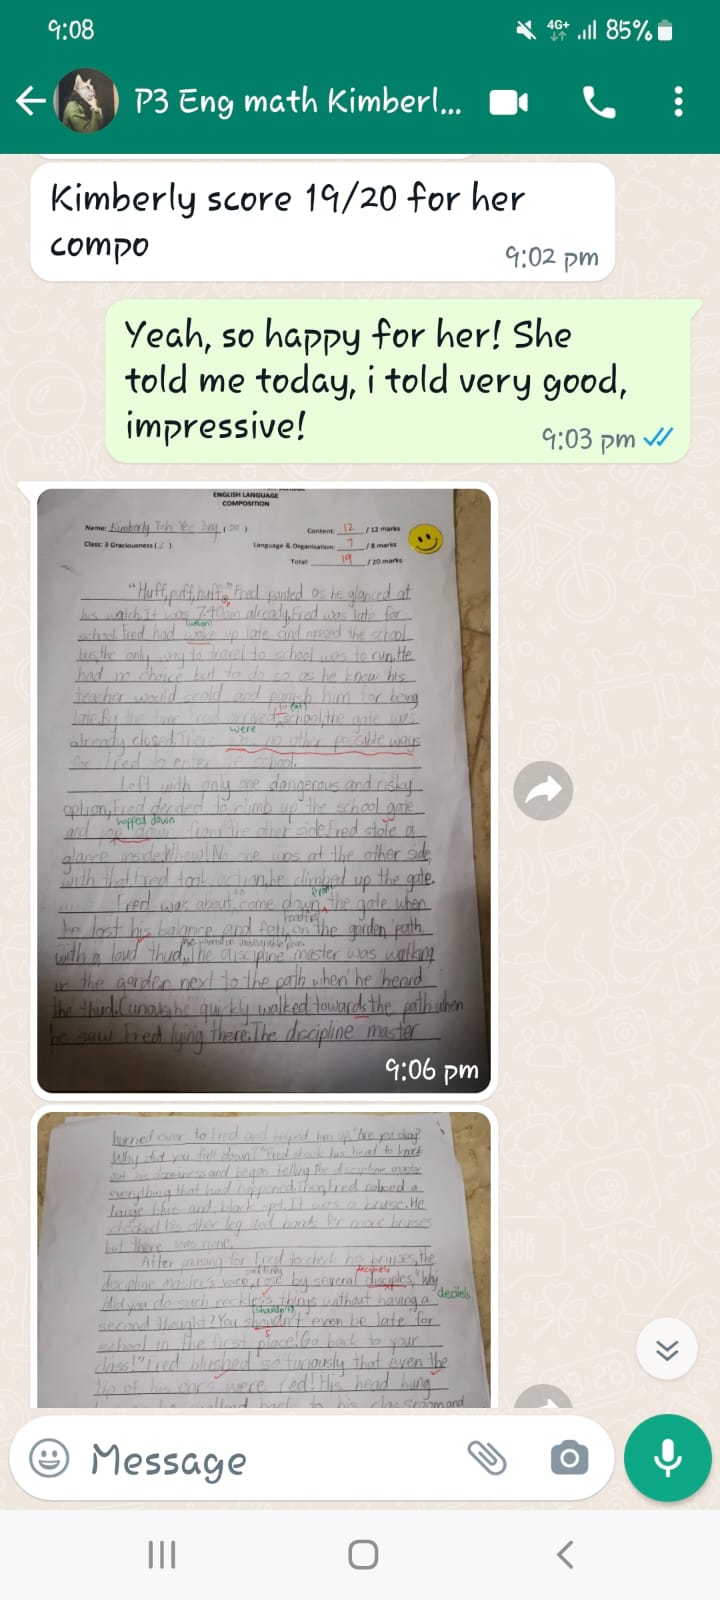 9:08
4G+
85%
P3 Eng math Kimberl...
Kimberly score 19/20 for her
compo
9:02 pm
Yeah, so happy for her! She
told me today, i told very good,
impressive!
9:03 pm
ENGLISH LANGUAGE
COMPOSITION
Name: Kimberly Toh Yee
Content: 12 /12 marks
Class: 3 Graciousness (3)
Language & Organisation: 7 /8 marks
Total: 19 /20 marks
"Huff, puff, huff," Fred panted as he glanced at
his watch. It was 7.40am already, Fred was late for
school. Fred had woke up late and missed the school
bus, the only way to travel to school was to run. He
had no choice but to do so as he knew his
teacher would scold and punish him for being
late. By the time Fred arrived school, the gate was
were
already closed. There no other possible ways
for Fred to enter the school.
Left with only one dangerous and risky
option, Fred decided to climb up the school gate
hopped down
and down from the other side. Fred stole a
glance inside. Whew! No one was at the other side,
with that Fred took action, he climbed up the gate.
to
from
Fred was about come down the gate when
he lost his balance and fell on the garden path
with a loud thud. The discipline master was walking
in the garden next to the path when he heard
the thud. he quickly walked towards the path when
he saw Fred lying there. The discipline master
9:06 pm
hurried over to Fred and helped him up. "Are you okay?
Why did you fall down?" Fred shook his head to knock
out his dizziness and began telling the discipline master
everything that had happened, then Fred noticed a
large blue and black spot. It was a bruise. He
checked his other leg and hands for more bruises
but there was none.
After Fred to check his bruises, the
suddenly
decibels
discipline master's voice rose by several "Why
decibels
did you do such reckless things without having a
(shouldn't)
second thought? You shouldn't even be late for
school in the first place! Go back to your
class!" Fred blushed so furiously that even the
tip of his ears were red! His head hung
back to his classroom and
Message